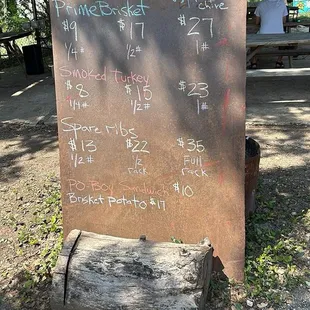 Prime Brisket
$9 $17 $27
1/4# 1/2# 1#
Smoked Turkey
$8 $15 $23
1/4# 1/2# 1#
Spare ribs
$13 $22 $35
1/2# 1/2 rack Full rack
PO-Boy Sandwich $10
Brisket potato $17